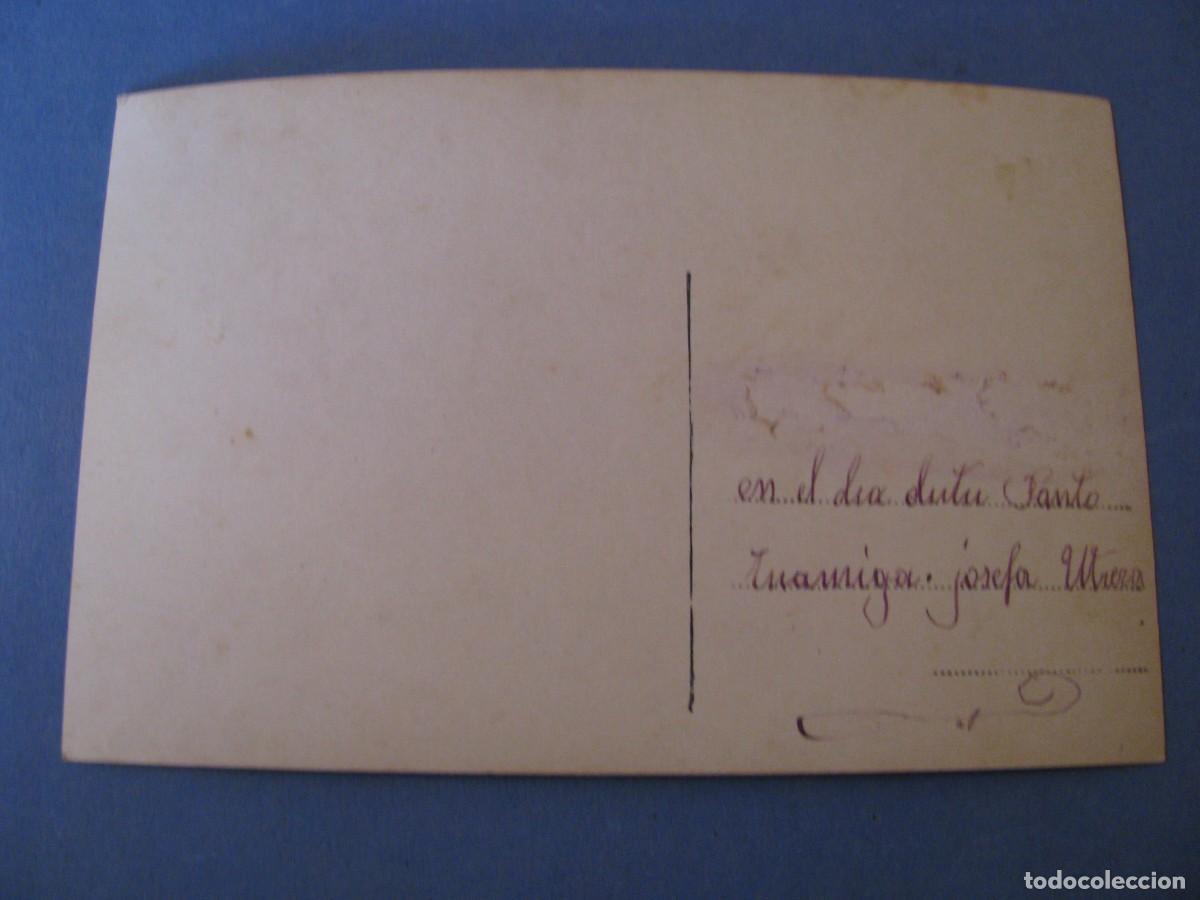 en el dia dutu Santo
Tuamiga. josefa Utrera
todocoleccion